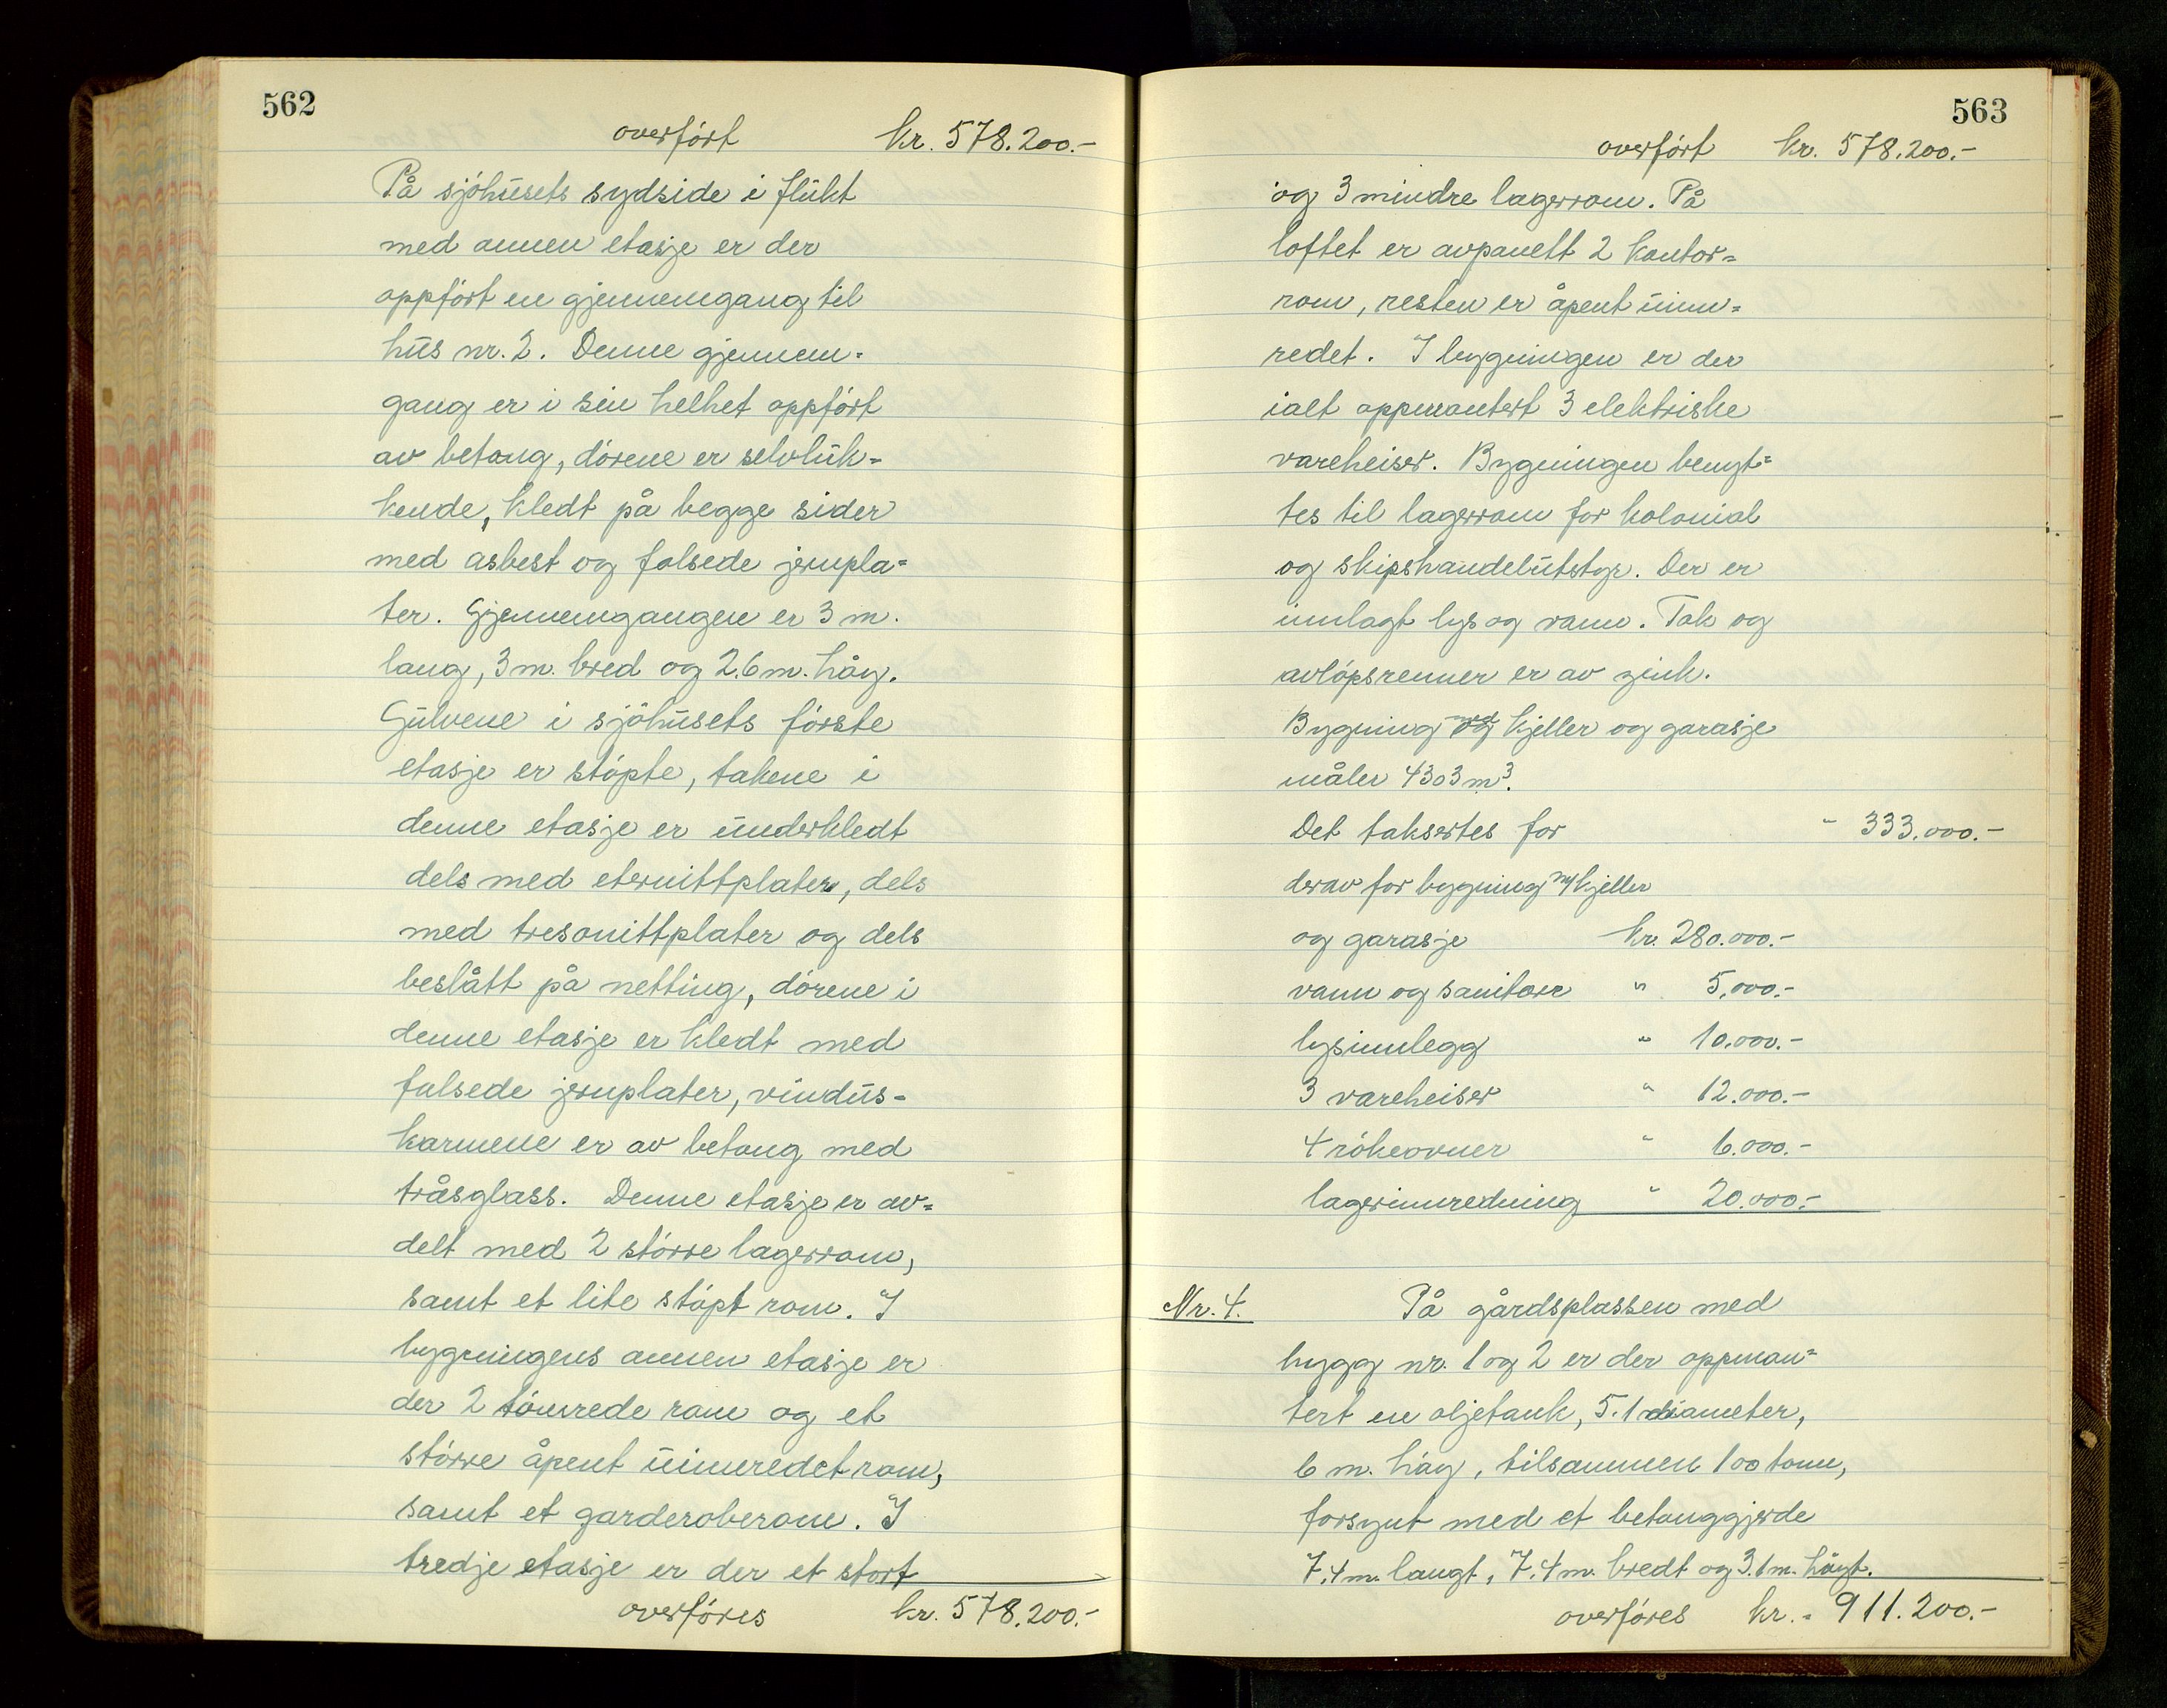 562
overført kr. 578.200.-
På sjøhusets sydside i flukt
med annen etasje er der
oppført en gjennemgang til
hus nr. 2. Denne gjennem-
gang er i sin helhet oppført
av betong, dørene er selvluk-
kende, kledt på begge sider
med asbest og falsede jernpla-
ter. Gjennemgangen er 3 m.
lang, 3 m. bred og 2.6 m. høy.
Gulvene i sjøhusets første
etasje er støpte, takene i
denne etasje er underkledt
dels med eternittplater, dels
med tresonittplater og dels
beslått på netting, dørene i
denne etasje er kledt med
falsede jernplater, vindus-
karmene er av betong med
tråsglass. Denne etasje er av-
delt med 2 større lagerrom,
samt et lite støpt rom. I
bygningens annen etasje er
der 2 tømrede rom og et
større åpent uinnredet rom,
samt et garderoberom. I
tredje etasje er der et stort
overføres kr. 578.200.-
563
overført kr. 578.200.-
og 3 mindre lagerrom. På
loftet er avpanelt 2 kontor-
rom, resten er åpent uinn-
redet. I bygningen er der
ialt oppmontert 3 elektriske
vareheiser. Bygningen benyt-
tes til lagerrom for kolonial
og skipshandelutstyr. Der er
innlagt lys og vann. Tak og
avløpsrenner er av zink.
Bygning med kjeller og garasje
måler 4303 m³.
Det taksertes for " 333.000.-
derav for bygning m/kjeller
og garasje kr. 280.000.-
vann og sanitær " 5.000.-
lysinnlegg " 10.000.-
3 vareheiser " 12.000.-
4 røkeovner " 6.000.-
lagerinnredning " 20.000.-
Nr. 4. På gårdsplassen med
bygg nr. 1 og 2 er der oppmon-
tert en oljetank, 5.1 diameter,
6 m. høy, tilsammen 100 tonn,
forsynt med et betonggjerde
7.4 m. langt, 7.4 m. bredt og 3.1 m. høyt.
overføres kr. " 911.200.-